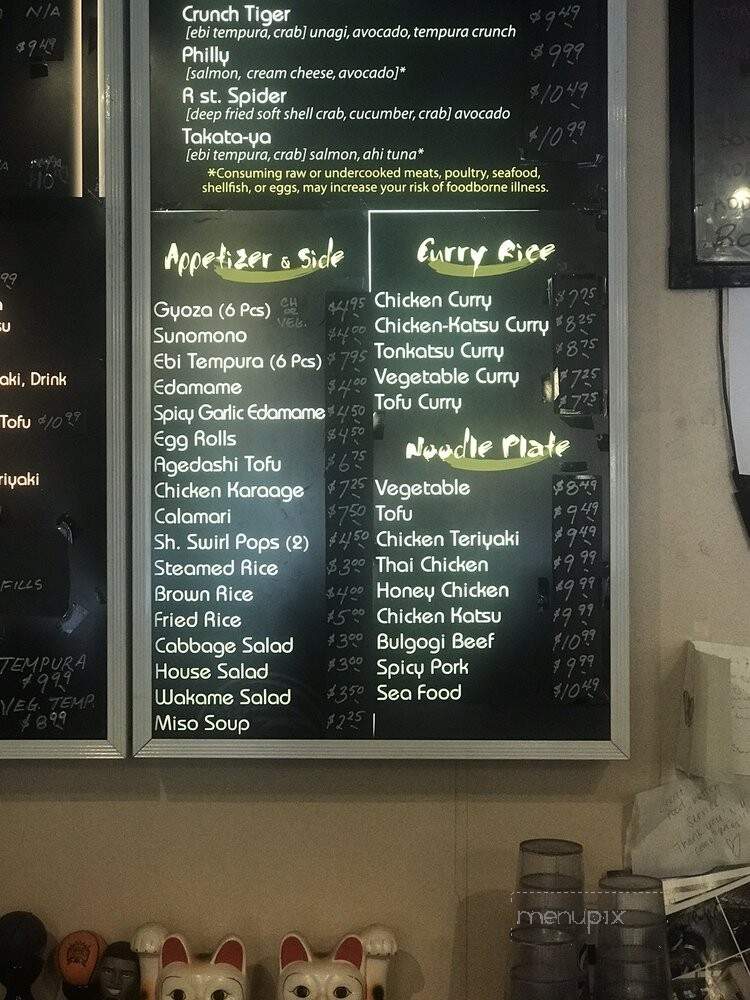 N/A
$9.49
Crunch Tiger $9.49
[ebi tempura, crab] unagi, avocado, tempura crunch
Philly $9.99
[salmon, cream cheese, avocado]*
R st. Spider $10.49
[deep fried soft shell crab, cucumber, crab] avocado
Takata-ya $10.99
[ebi tempura, crab] salmon, ahi tuna*
*Consuming raw or undercooked meats, poultry, seafood,
shellfish, or eggs, may increase your risk of foodborne illness.
Appetizer & Side
Gyoza (6 Pcs) CH OR VEG. $4.95
Sunomono $4.00
Ebi Tempura (6 Pcs) $7.95
Edamame $4.00
Spicy Garlic Edamame $4.50
Egg Rolls $4.50
Agedashi Tofu $6.75
Chicken Karaage $7.25
Calamari $7.50
Sh. Swirl Pops (2) $4.50
Steamed Rice $3.00
Brown Rice $4.00
Fried Rice $5.00
Cabbage Salad $3.00
House Salad $3.00
Wakame Salad $3.50
Miso Soup $2.25
Curry Rice
Chicken Curry $7.75
Chicken-Katsu Curry $8.25
Tonkatsu Curry $8.75
Vegetable Curry $7.25
Tofu Curry $7.75
Noodle Plate
Vegetable $8.49
Tofu $9.49
Chicken Teriyaki $9.49
Thai Chicken $9.99
Honey Chicken $9.99
Chicken Katsu $9.99
Bulgogi Beef $10.99
Spicy Pork $9.99
Sea Food $10.49
aki, Drink
Tofu $10.99
riyaki
FILLS
TEMPURA
$9.99
VEG. TEMP.
$8.99
Thank you
menupix